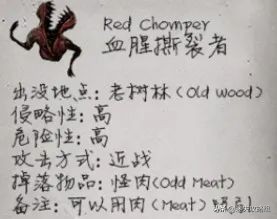 Red Chomper
血腥撕裂者
出没地点: 老树林 (Old wood)
侵略性: 高
危险性: 高
攻击方式: 近战
掉落物品: 怪肉(Odd Meat)
备注: 可以用肉 (Meat) 吸引